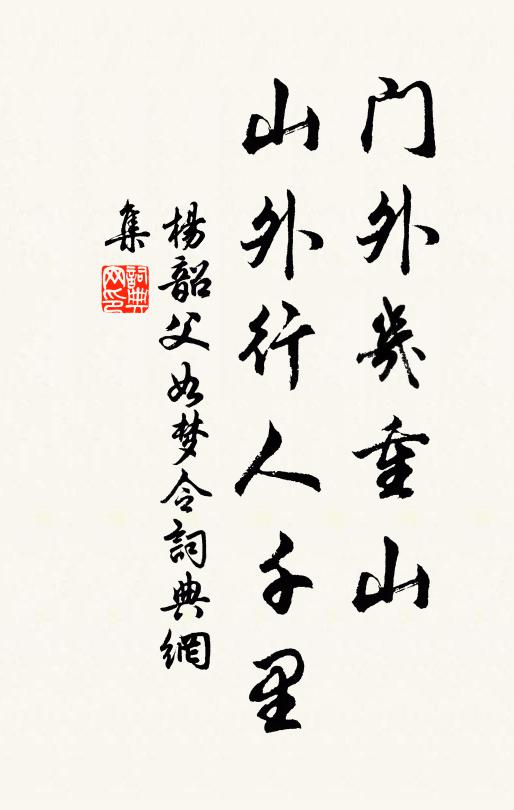 门外几重山
山外行人千里
楊韶父如梦令詞典網
集
詞典网印